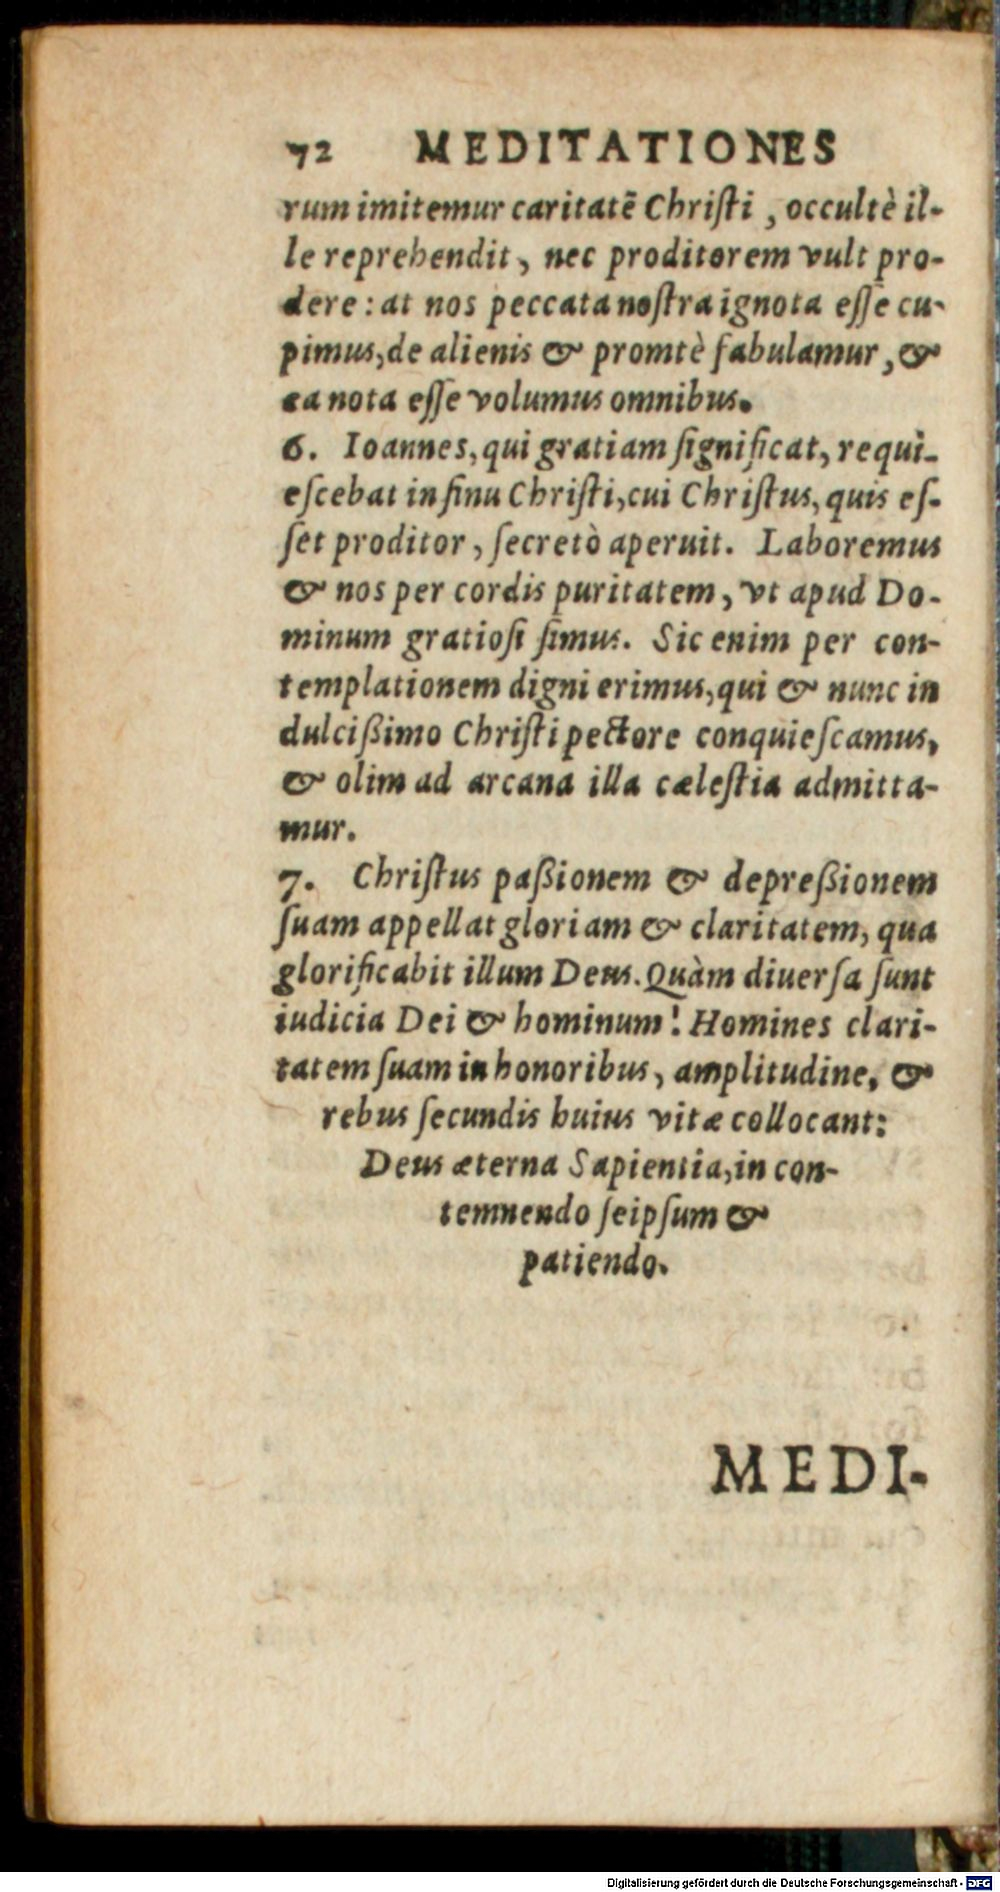 72 MEDITATIONES
rum imitemur caritatē Chriſti, occultè il-
le reprehendit, nec proditorem vult pro-
dere: at nos peccata noſtra ignota eſſe cu-
pimus, de alienis & promtè fabulamur, &
ea nota eſſe volumus omnibus.
6. Ioannes, qui gratiam ſignificat, requi-
eſcebat in ſinu Chriſti, cui Chriſtus, quis eſ-
ſet proditor, ſecretò aperuit. Laboremus
& nos per cordis puritatem, vt apud Do-
minum gratioſi ſimus. Sic enim per con-
templationem digni erimus, qui & nunc in
dulcißimo Chriſti pectore conquieſcamus,
& olim ad arcana illa cæleſtia admitta-
mur.
7. Chriſtus paßionem & depreßionem
ſuam appellat gloriam & claritatem, qua
glorificabit illum Deus. Quàm diuerſa ſunt
iudicia Dei & hominum! Homines clari-
tatem ſuam in honoribus, amplitudine, &
rebus ſecundis huius vitæ collocant:
Deus æterna Sapientia, in con-
temnendo ſeipſum &
patiendo.
MEDI-
Digitalisierung gefördert durch die Deutsche Forschungsgemeinschaft - DFG